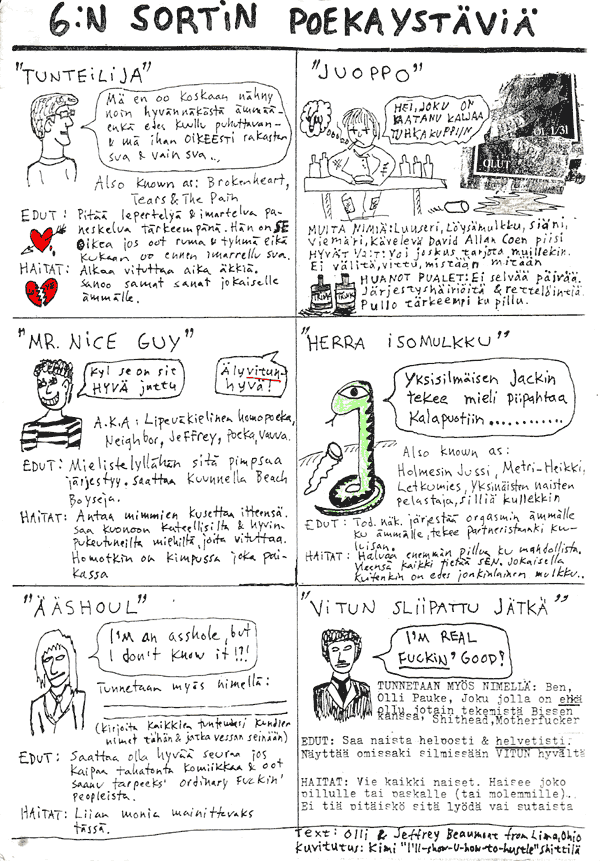 6:N SORTIN POEKAYSTÄVIÄ
"TUNTEILIJA"
Mä en oo koskaan nähny
noin hyvännäköstä ämmää-
enkä edes kuullu puhuttavan-
& mä ihan OIKEESTI rakastan
sua & vain sua...
Also known as: Brokenheart,
Tears & The Pain
EDUT: Pitää lepertelyä & imartelua pa-
neskelua tärkeempänä. Hän on SE
oikea jos oot ruma & tyhmä eikä
kukaan oo ennen imarrellu sua.
HAITAT: Alkaa vituttaa aika äkkiä.
Sanoo samat sanat jokaiselle
ämmälle.
"JUOPPO"
HEI, JOKU ON
KAATANU KALJAA
TUHKAKUPPIIN
OLUT
ÖL 1/31
MUITA NIMIÄ: Luuseri, Löysämulkku, siäni,
viemäri, kävelevä David Allan Coen piisi
HYVÄT
Voi joskus tarjota muillekin.
Ei välitä, vittu, mistään mitään
HUANOT PUALET: Ei selvää päivää.
Järjestyshäiriöitä & rettelöintiä.
Pullo tärkeempi ku pillu.
"MR. NICE GUY"
Kyl se on sit
HYVÄ juttu
Älyvitun-
hyvä!
A.K.A: Lipeväkielinen homopoeka,
Neighbor, Jeffrey, pocka, vauva.
EDUT: Mielistelyllähän sitä pimpsaa
järjestyy. Saattaa kuunnella Beach
Boyseja.
HAITAT: Antaa mimmien kusettaa ittensä.
Saa kuonoon kateellisilta & hyvin-
pukeutuneilta miehiltä, joita vituttaa.
Homotkin on kimpussa joka pai-
kassa
"HERRA ISOMULKKU"
Yksisilmäisen Jackin
tekee mieli piipahtaa
Kalapuotiin............
Also known as:
Holmesin Jussi, Metri-Heikki,
Letkumies, Yksinäisten naisten
pelastaja, silliä kullekkin
EDUT: Tod.näk. järjestää orgasmin ämmälle
ku ämmälle, tekee partneristaan ki ku-
luisan.
HAITAT: Haluaa enemmän pillua ku mahdollista.
Yleensä kaikki tietää SEN. Jokaisella
kuitenkin on edes jonkinlainen mulkku..
"ÄÄSHOUL"
I'm an asshole, but
I don't know it!!!
Tunnetaan myös nimellä:
(kirjoita kaikkien tuntemiesi kundien
nimet tähän & jatka vessan seinään)
EDUT: Saattaa olla hyvää seuraa jos
kaipaa tahatonta komiikkaa & oot
saanu tarpeeks' ordinary fuckin'
peopleista.
HAITAT: Liian monia mainittavaks
tässä.
"VITUN SLIIPATTU JÄTKÄ"
I'M REAL
FUCKIN' GOOD!
TUNNETAAN MYÖS NIMELLÄ: Ben,
Olli Pauke, Joku jolla on ehkä
ollu jotain tekemistä Bissen
kanssa, Shithead, Motherfucker
EDUT: Saa naista helposti & helvetisti.
Näyttää omissaki silmissään VITUN hyvältä
HAITAT: Vie kaikki naiset. Haisee joko
pillulle tai paskalle (tai molemmille)..
Ei tiä pitäiskö sitä lyödä vai sutaista
Text: Olli & Jeffrey Beaumont from Lima, Ohio
Kuvitutus: Kimi "I'll-show-U-how-to-hustle" Shittilä